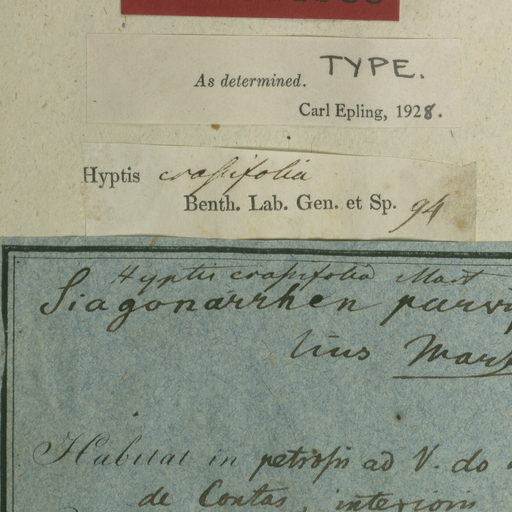 TYPE.
As determined.
Carl Epling, 1928.
Hyptis crassifolia
Benth. Lab. Gen. et Sp. 94
Hyptis crassifolia Mart
Siagonarrhen parvi
lius Mart
Habitat in petrosis ad V. do
de Contas, interioris